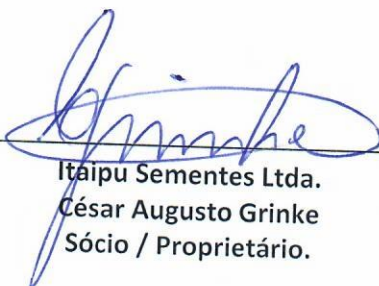 Grinke
Itaipu Sementes Ltda.
César Augusto Grinke
Sócio / Proprietário.